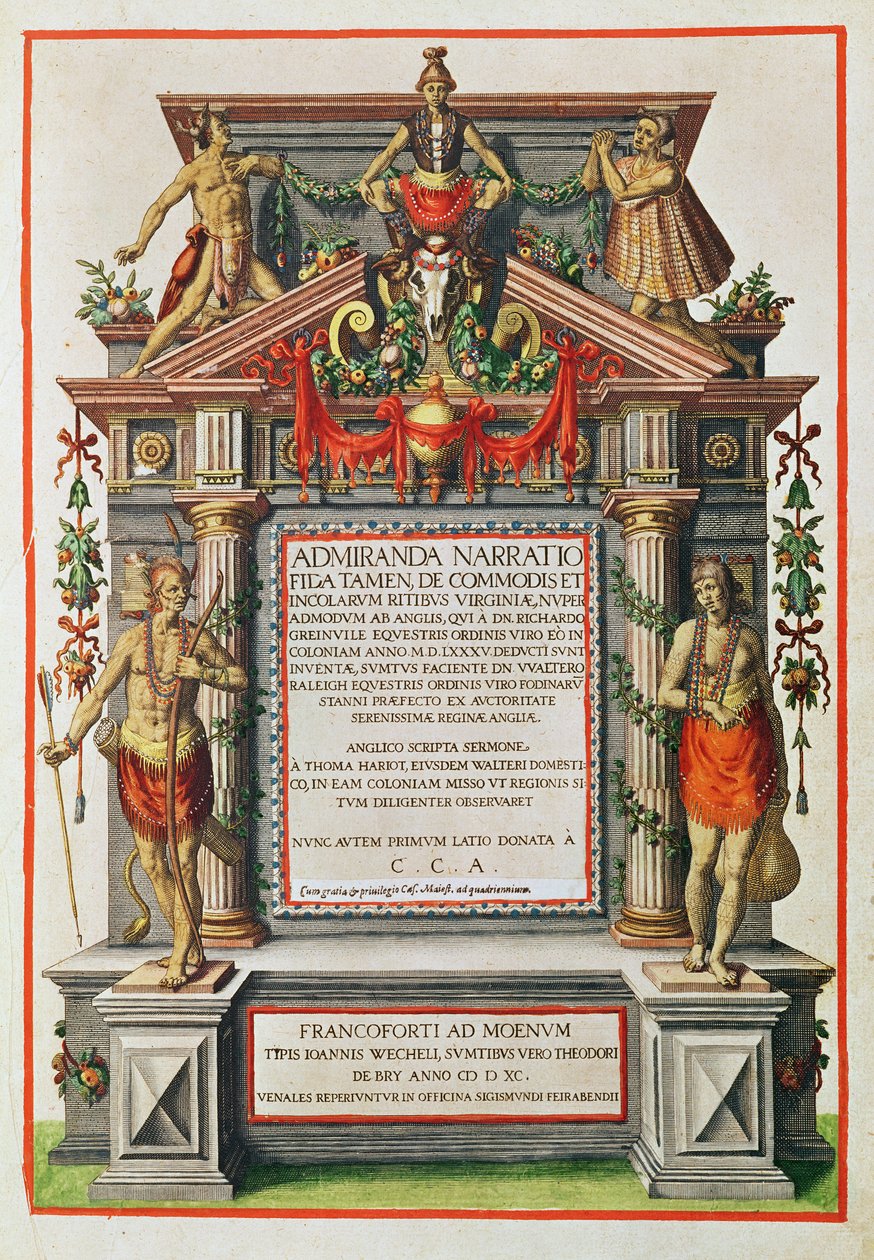 ADMIRANDA NARRATIO
FIDA TAMEN, DE COMMODIS ET
INCOLARVM RITIBVS VIRGINIÆ, NVPER
ADMODVM AB ANGLIS, QVI À DN. RICHARDO
GREINVILE EQVESTRIS ORDINIS VIRO EÒ IN
COLONIAM ANNO. M.D.LXXXV. DEDVCTI SVNT
INVENTÆ, SVMTVS FACIENTE DN. VVALTERO
RALEIGH EQVESTRIS ORDINIS VIRO FODINARV̄
STANNI PRÆFECTO EX AVCTORITATE
SERENISSIMÆ REGINÆ ANGLIÆ.
ANGLICO SCRIPTA SERMONE
À THOMA HARIOT, EIVSDEM WALTERI DOMESTI-
CO, IN EAM COLONIAM MISSO VT REGIONIS SI-
TVM DILIGENTER OBSERVARET
NVNC AVTEM PRIMVM LATIO DONATA À
C. C. A.
Cum gratia & priuilegio Cæs. Maiest. ad quadriennium.
FRANCOFORTI AD MOENVM
TIPIS IOANNIS WECHELI, SVMTIBVS VERO THEODORI
DE BRY ANNO CIↃ D XC.
VENALES REPERIVNTVR IN OFFICINA SIGISMVNDI FEIRABENDII